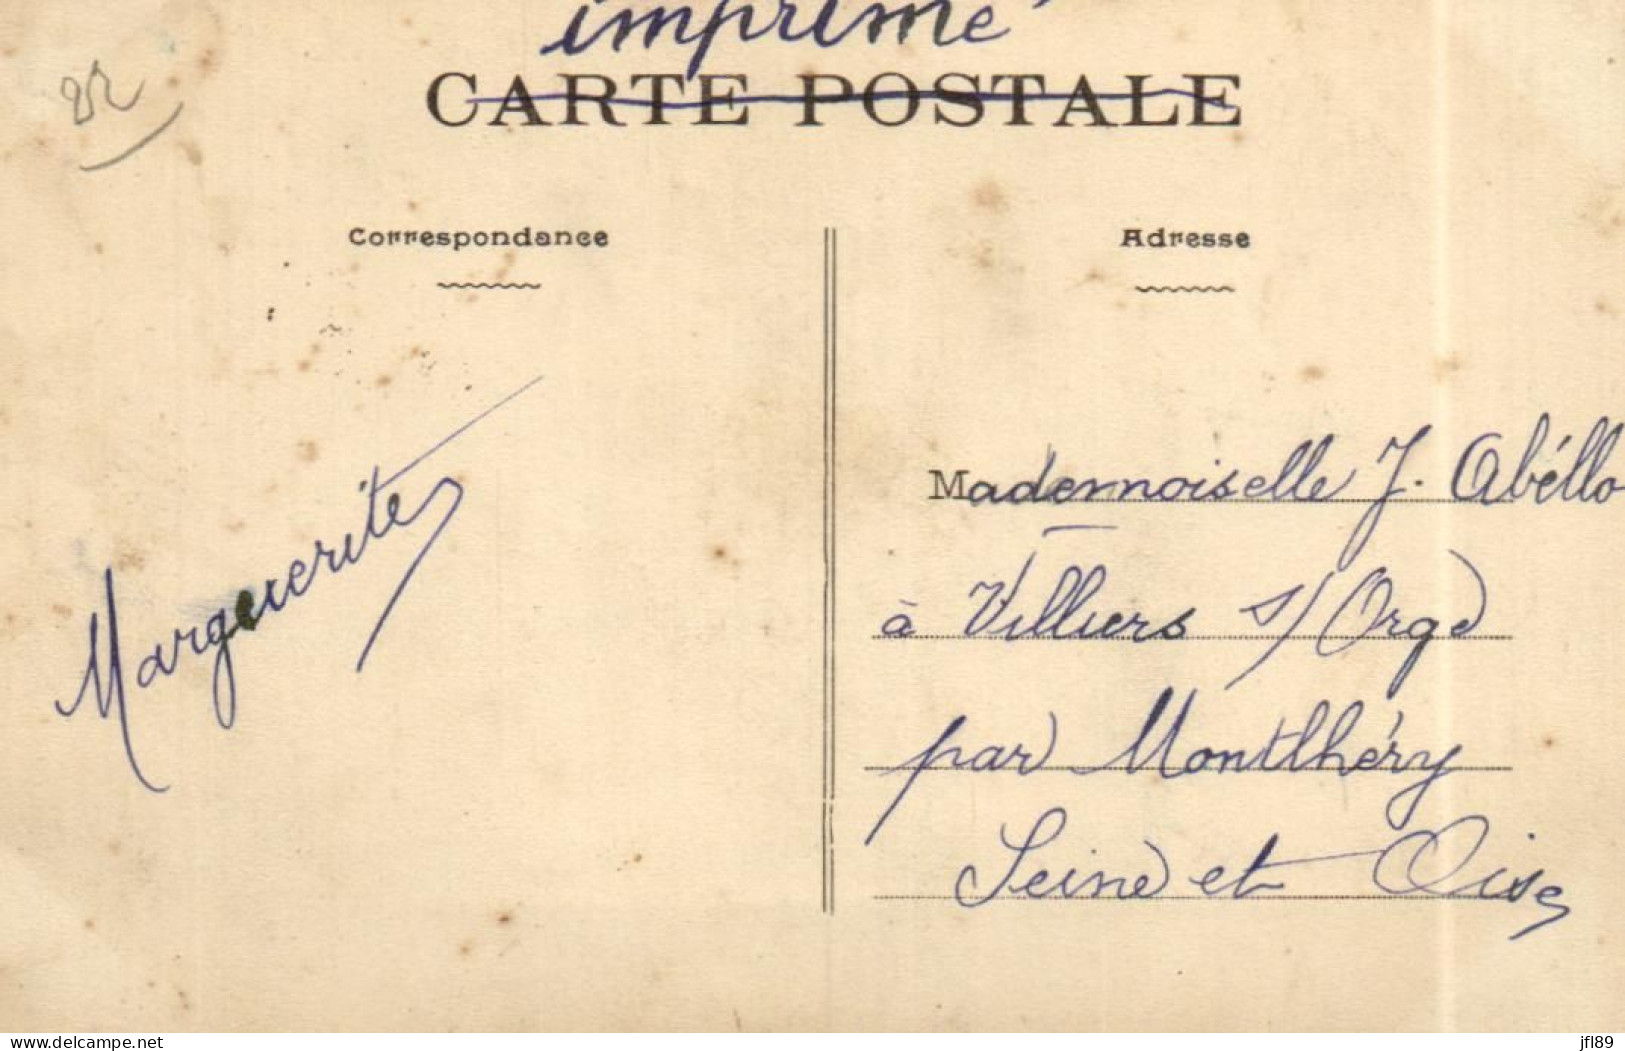 imprimé
22
CARTE POSTALE
Correspondance
Adresse
Marguerite
Mademoiselle J. Abéllo
à Villiers s/Orge
par Montlhéry
Seine et Oise
delcampe.net
jfl89